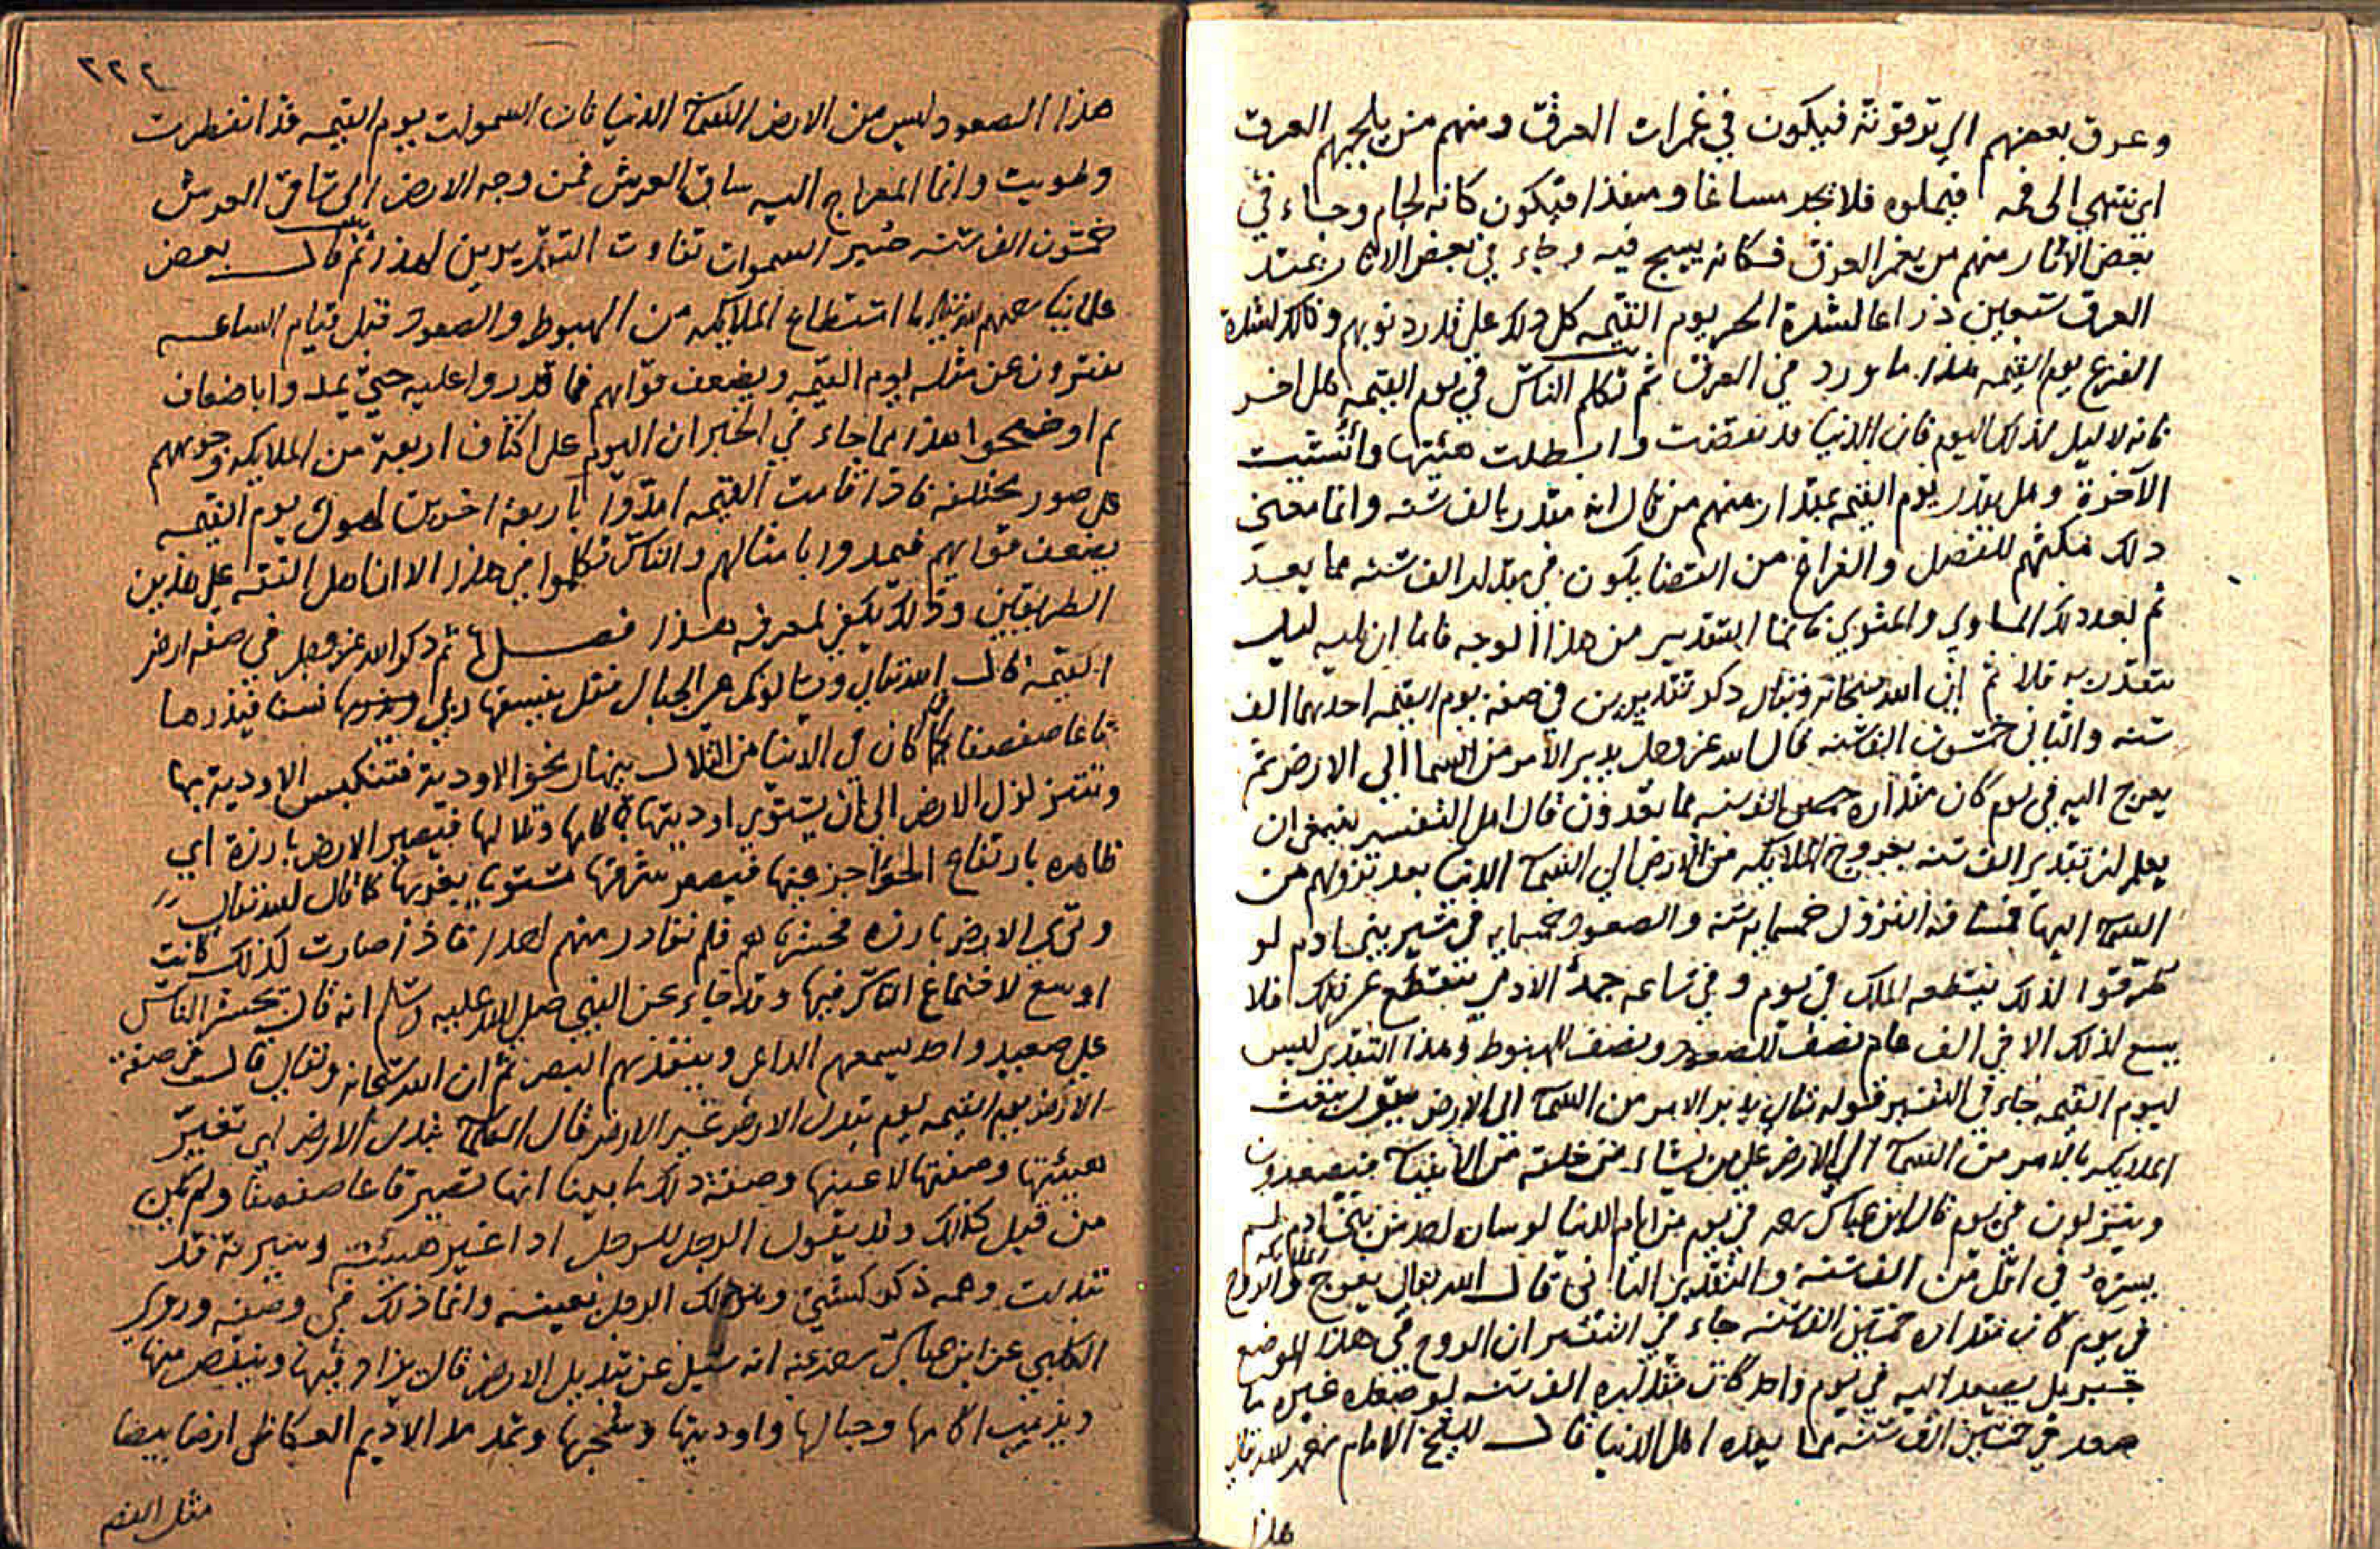 وعرق بعضهم الي ترقوته فيكون في غمرات العرق ومنهم من يلجمهم العرق
اي ينتهي الى فمه فيملوه فلا يجد مساغا ومنفذا فيكون كانه لجام وجاء في
بعض الاثار منهم من يغمر العرق فكانه يسبح فيه وجاء في بعض الاثار يمتد
العرق سبعين ذراعا لشدة الحر يوم القيمه كل ذلك على قدر ذنوبهم وذلك لشدة
الفزع يوم القيمه هذا ما ورد في العرق ثم تكلم الناس في يوم القيمه هل اخر
فانه لا ليل لذلك اليوم فان الدنيا قد نقضت وابطلت هيئتها وانشئت
الآخرة وهل يقدر يوم القيمه بمقدار منهم من قال انه مقدر بالف سنه وانما معنى
ذلك مكثهم للفصل والفراغ من القضا يكون في مقدار الف سنه مما يعد
ثم بعد ذلك المساوي والمثوي فانما التقدير من هذا الوجه فاما ان عليه ليل
يتقدر به فلا ثم ان الله سبحانه وتعالى ذكر تقديرين في صفة يوم القيمه احدهما الف
سنه والثاني خمسون الف سنه قال الله عز وجل يدبر الامر من السما الى الارض ثم
يعرج اليه في يوم كان مقداره الف سنه مما تعدون قال اهل التفسير ينبغي ان
يعلم ان تقدير الف سنه بعروج الملايكه من الارض الي السماء الدنيا بعد نزولهم من
السماء اليها فمسافة النزول خمسمايه سنه والصعود خمسمايه في سير بني ادم لو
طرقوا لذلك فيقطعه الملك في يوم وفي ساعه جهد الادمي ينقطع عن ذلك فلا
يسع لذلك الا في الف عام نصف للصعود ونصف للهبوط وهذا التقدير ليس
ليوم القيمه جاء في التفسير قوله تعالى يدبر الامر من السماء الى الارض يقول يبعث
الملايكه بالامر من السماء الي الارض على من يشاء من خلقه من الانبياء فيصعدون
وينزلون في يوم قال ابن عباس رضه في يوم من ايام الدنيا لو ساره احد من بني ادم لم
يسره في اقل من الف سنه والتقدير الثاني قال الله تعالى تعرج الملايكه والروح
في يوم كان مقداره خمسين الف سنه جاء في التفسير ان الروح في هذا الموضع
جبريل يصعد اليه في يوم واحد كان مقداره الف سنه لو صعده غيره ما
صعد في خمسين الف سنه مما يعده اهل الدنيا قال الشيخ الامام رحمه الله تعالى
هذا
٢٢٢
هذا الصعود ليس من الارض الى السماء الدنيا فان السموات يوم القيمه قد انفطرت
وطويت وانما المعراج اليه ساق العرش فمن وجه الارض الى ساق العرش
خمسون الف سنه خسير السموات تفاوت التقديرين لهذا ثم قال بعض
علماينا رحمهم الله تعالى ما استطاع الملايكه من الهبوط والصعود قبل قيام الساعه
يفترون عن مثله يوم القيمه ويضعف قواهم فما قدروا عليه حتى يمدوا باضعاف
ثم اوضحوا هذا بما جاء في الخبر ان اليوم على اكتاف اربعة من الملايكه وجوههم
على صور مختلفه فاذا قامت القيمه امدوا باربعة اخرين لهول يوم القيمه
يضعف قواهم فيمدوا بامثالهم والناس تكلموا في هذا الا ان اهل السنه على هذين
الطريقين وذلك يكفي لمعرفه هذا فصل ثم ذكر الله عز وجل في صفة ارض
القيمة قال الله تعالى ويسالونك عن الجبال فقل ينسفها ربي نسفا فيذرها
قاعا صفصفا فما كان في الدنيا من التلال ينهار نحو الاودية فتنكبس الاودية بها
وتتزلزل الارض الى ان يستوي اوديتها واكامها وتلالها فيصير الارض بارزة اي
ظاهره بارتفاع الحواجز عنها فيصير مشرقها مستويا بمغربها كما قال الله تعالى
وترى الارض بارزه وحشرناهم فلم نغادر منهم احدا فاذا صارت كذلك كانت
اوسع لاجتماع الناس فيها وقد جاء عن النبي صلى الله عليه وسلم انه قال يحشر الناس
على صعيد واحد يسمعهم الداعي وينفذهم البصر ثم ان الله سبحانه وتعالى قال في صفة
الارض يوم القيمه يوم تبدل الارض غير الارض قال العلماء تبدل الارض اي تغير
هيئتها وصفتها لا عينها وصفة ذلك ما بينا انها تصير قاعا صفصفا ولم تكن
من قبل كذلك وقد يقول الرجل للرجل اذا غير هيئته وسيرته قد
تبدلت وهمه ذكر كسيي وهو ذلك الرجل بعينه وانما ذلك في وصفه وروى
الكلبي عن ابن عباس رضه عنه انه سئل عن تبديل الارض قال يزاد فيها وينقص منها
ويذهب اكامها وجبالها واوديتها وشجرها وتمد مد الاديم العكاظي ارضا بيضا
مثل الفضه